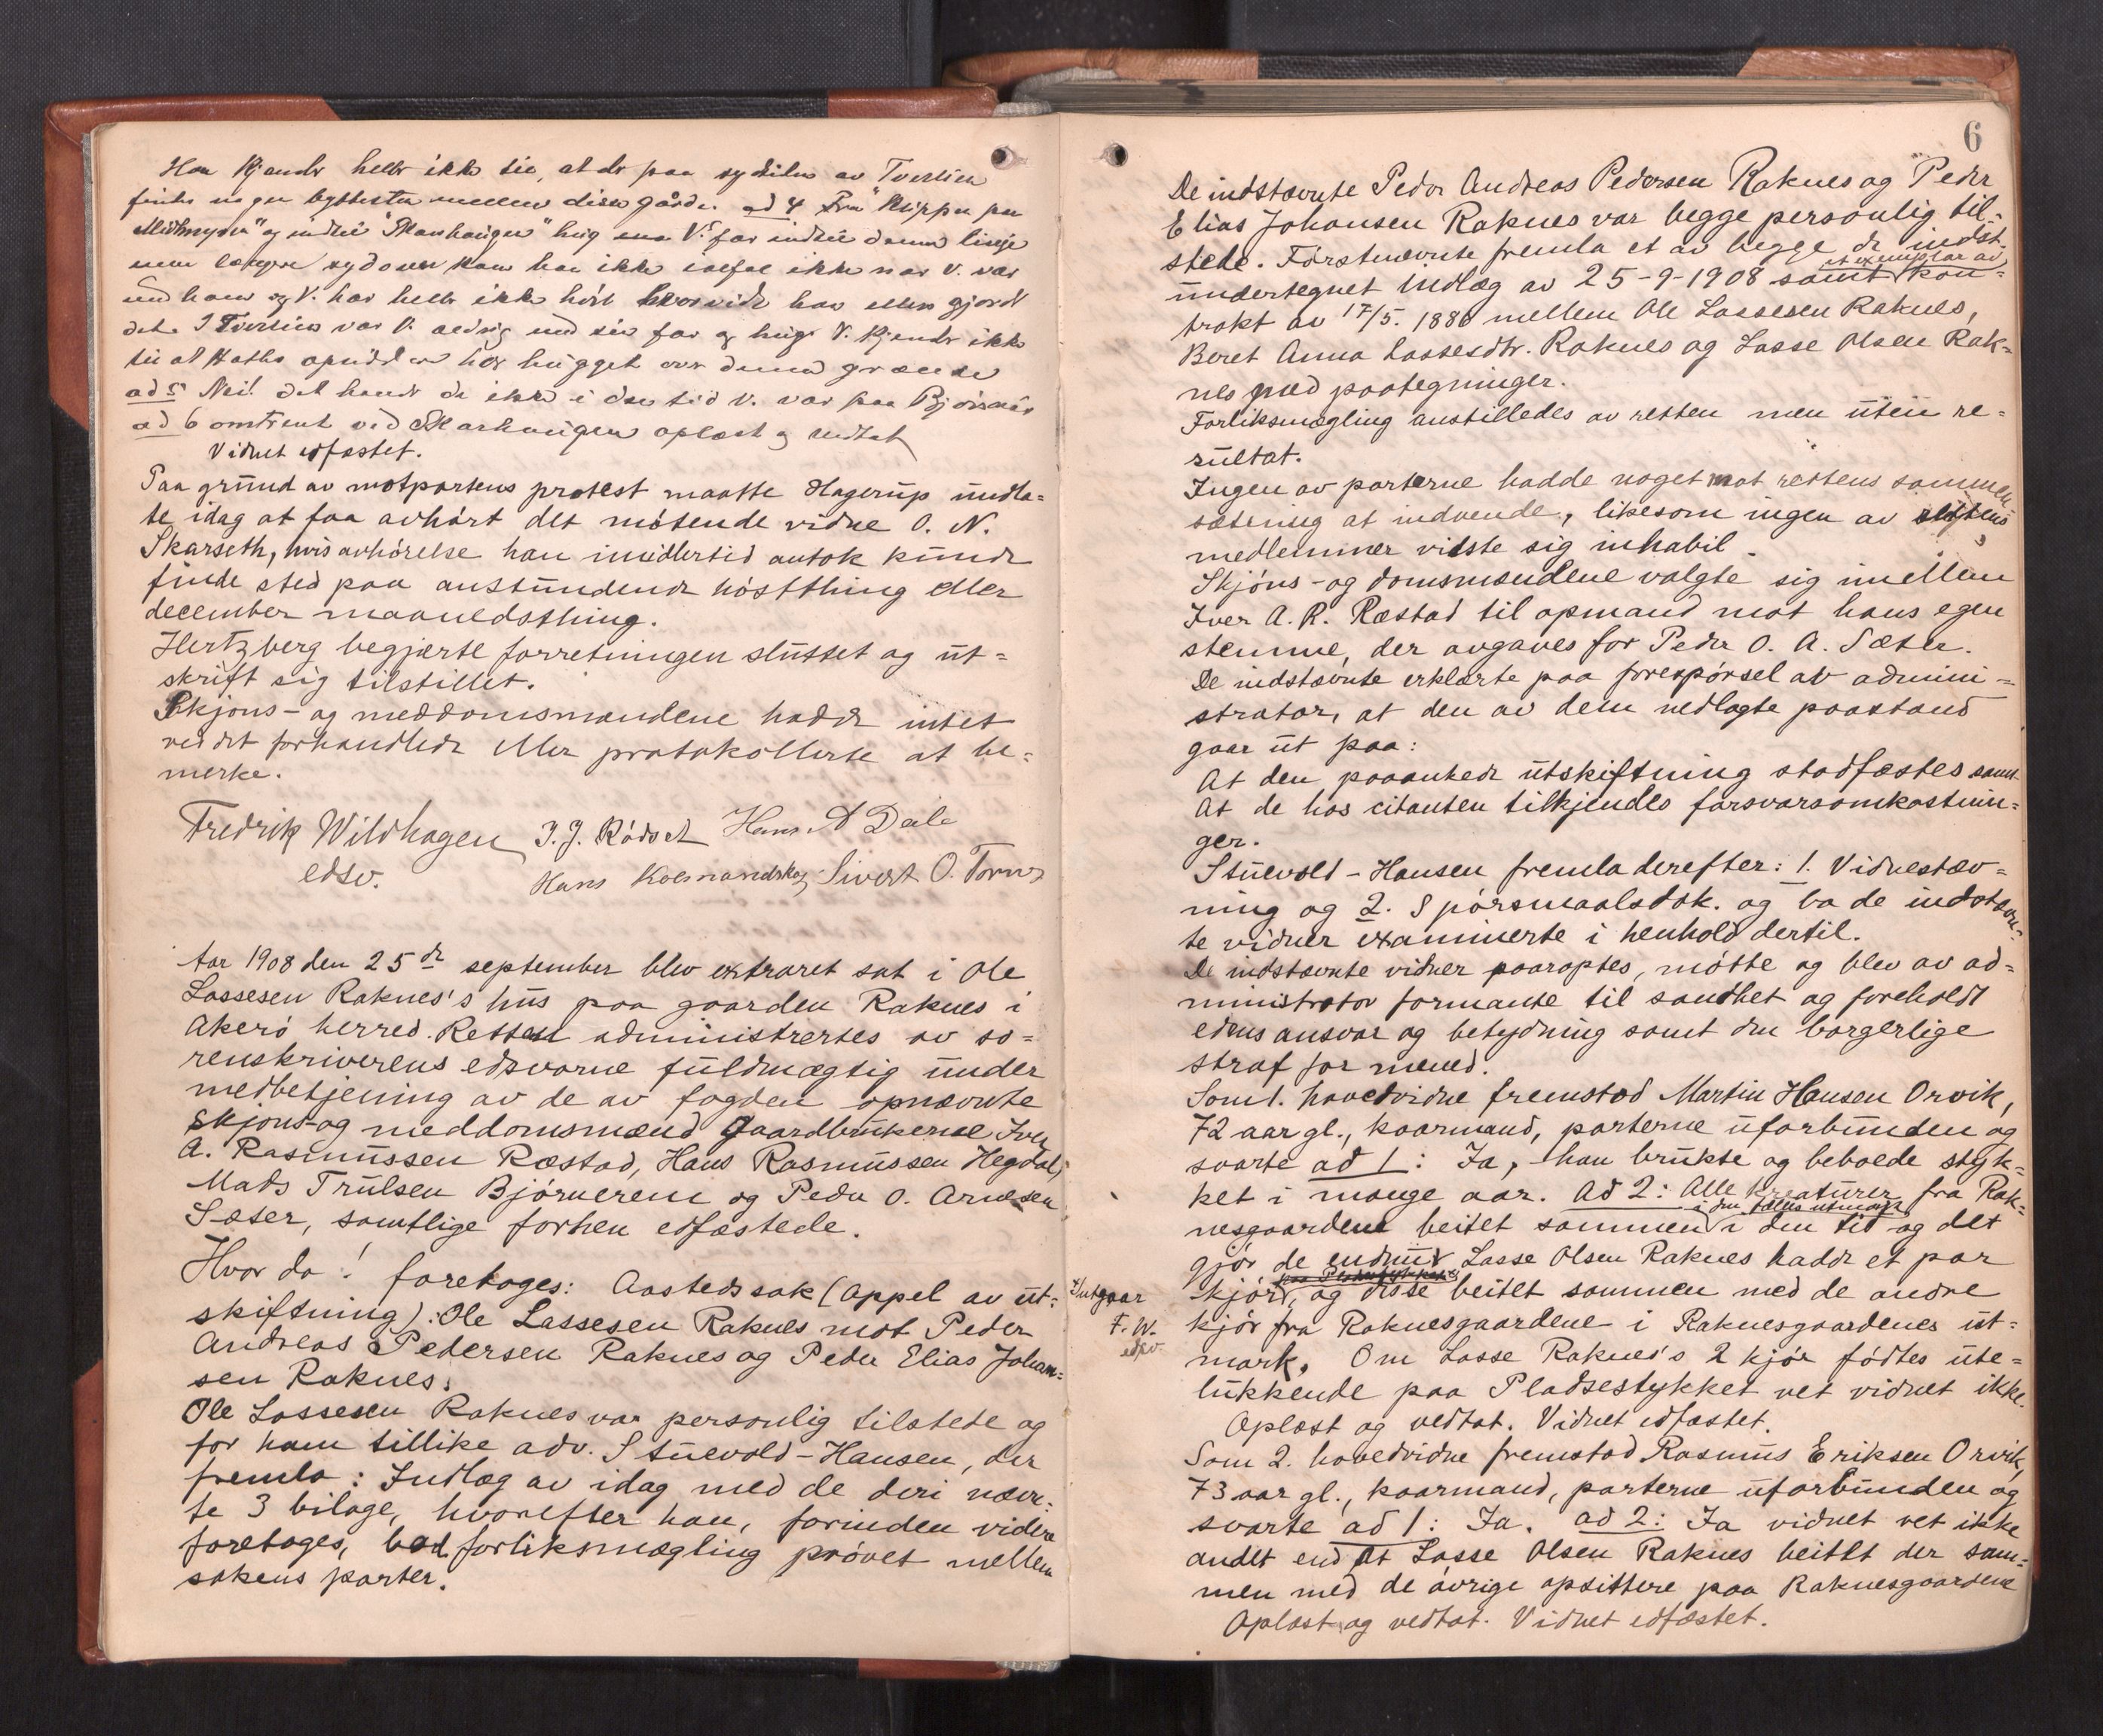 Han kjender heller ikke til, at der paa sydsiden av Tverlien
findes nogen byttesten mellem disse gårde. ad 4 Fra "Klippen paa
Midtmyren" og indtil "Skarhaugen" hug V.s far indtil denne linje
men længere sydover kom han ikke ialfal ikke naar V. var
med ham og V. har heller ikke hört hvorvidt han ellers gjord
det. I Tverlien var V. aldrig med sin far og hug. V. kjender ikke
til at Mathis opsidder har hugget over denne grænse
ad 5 Nei! det hendte da ikke i den tid V. var paa
ad 6 omtrent ved Skarhaugen oplæst og vedtat
Vidnet edfæstet.
Paa grund av motpartens protest maatte Hagerup undla=
te idag at faa avhört det mötende vidne O. N.
Skarseth, hvis avhörelse han imidlertid antok kunde
finde sted paa anstundende höstthing eller
december maanedsthing.
Hertzberg begjærte forretningen sluttet og ut=
skrift sig tilstillet.
Skjöns- og meddomsmændene hadde intet
ved det forhandlede eller protokollerte at be=
merke.
Fredrik Wildhagen J. J. Rödset Hans A Dale
edsv. Hans Kolsmandskog Sivert O. Torvig
Aar 1908 den 25de september blev extraret sat i Ole
Lassesen Raknes's hus paa gaarden Raknes i
Akerö herred. Retten administrertes av so=
renskriverens edsvorne fuldmægtig under
medbetjening av de av fogden opnævnte
skjöns- og meddomsmænd gaardbrukerne Iver
A. Rasmussen Ræstad, Hans Rasmussen Hegdal,
Mads Trulsen Björnerem og Peder O. Arnesen
Sæter, samtlige forhen edfæstede.
Hvor da! foretoges: Aastedssak (appel av ut=
skiftning): Ole Lassesen Raknes mot Peder
Andreas Pedersen Raknes og Peder Elias Johan=
sen Raknes.
Ole Lassesen Raknes var personlig tilstede og
for ham tillike adv. Stuevold-Hansen, der
fremla: Indlæg av idag med de deri nævn=
te 3 bilage, hvorefter han, forinden videre
foretoges, bad forliksmægling prövet mellem
sakens parter.
6
De indstævnte Peder Andreas Pedersen Raknes og Peder
Elias Johansen Raknes var begge personlig til=
stede. Förstnævnte fremla et av begge de indst.
undertegnet indlæg av 25-9-1908 samt et exemplar av kon=
trakt av 17/5. 1880 mellem Ole Lassesen Raknes,
Beret Anna Lassesdtr. Raknes og Lasse Olsen Rak=
nes med paategninger.
Forliksmægling anstilledes av retten men uten re=
sultat.
Ingen av parterne hadde noget mot rettens sammen
sætning at indvende, likesom ingen av rettens
medlemmer vidste sig inhabil.
Skjöns- og domsmændene valgte sig imellem
Iver A. R. Ræstad til opmand mot hans egen
stemme, der avgaves for Peder O. A. Sæter.
De indstævnte erklærte paa forespörsel av admini=
strator, at den av dem nedlagte paastand
gaar ut paa:
At den paaankede utskiftning stadfæstes samt
At de hos citanten tilkjendes forsvarsomkostnin=
ger.
Stuevold-Hansen fremla derefter: 1. Vidnestæv=
ning og 2. Spörsmaalsdok. og ba de indstævn=
te vidner examinerte i henhold dertil.
De indstævnte vidner paaroptes, mötte og blev av ad=
ministrator formante til sandhet og foreholdt
edens ansvar og betydning samt den borgerlige
straf for mened.
Som 1. hovedvidne fremstod Martin Hansen Orvik,
72 aar gl., kaarmand, parterne uforbunden og
svarte ad 1: Ja, han brukte og beboede styk=
ket i mange aar. Ad 2: Alle kreaturer fra Rak=
nesgaardene beitet sammen i den fælles utmark i den tid og det
gjör de endnu. Lasse Olsen Raknes hadde et par
Intgaar
F. W.
edsv.
kjör, og disse beitet sammen med de andre
kjör fra Raknesgaardene i Raknesgaardenes ut=
mark. Om Lasse Raknes's 2 kjör födtes ute=
lukkende paa Pladsestykket vet vidnet ikke.
Oplæst og vedtat. Vidnet edfæstet.
Som 2. hovedvidne fremstod Rasmus Eriksen Orvik,
73 aar gl., kaarmand, parterne uforbunden og
svarte ad 1: Ja. ad 2: Ja vidnet vet ikke
andet end at Lasse Olsen Raknes beitet der sam=
men med de övrige opsittere paa Raknesgaardene
Oplæst og vedtat. Vidnet edfæstet.